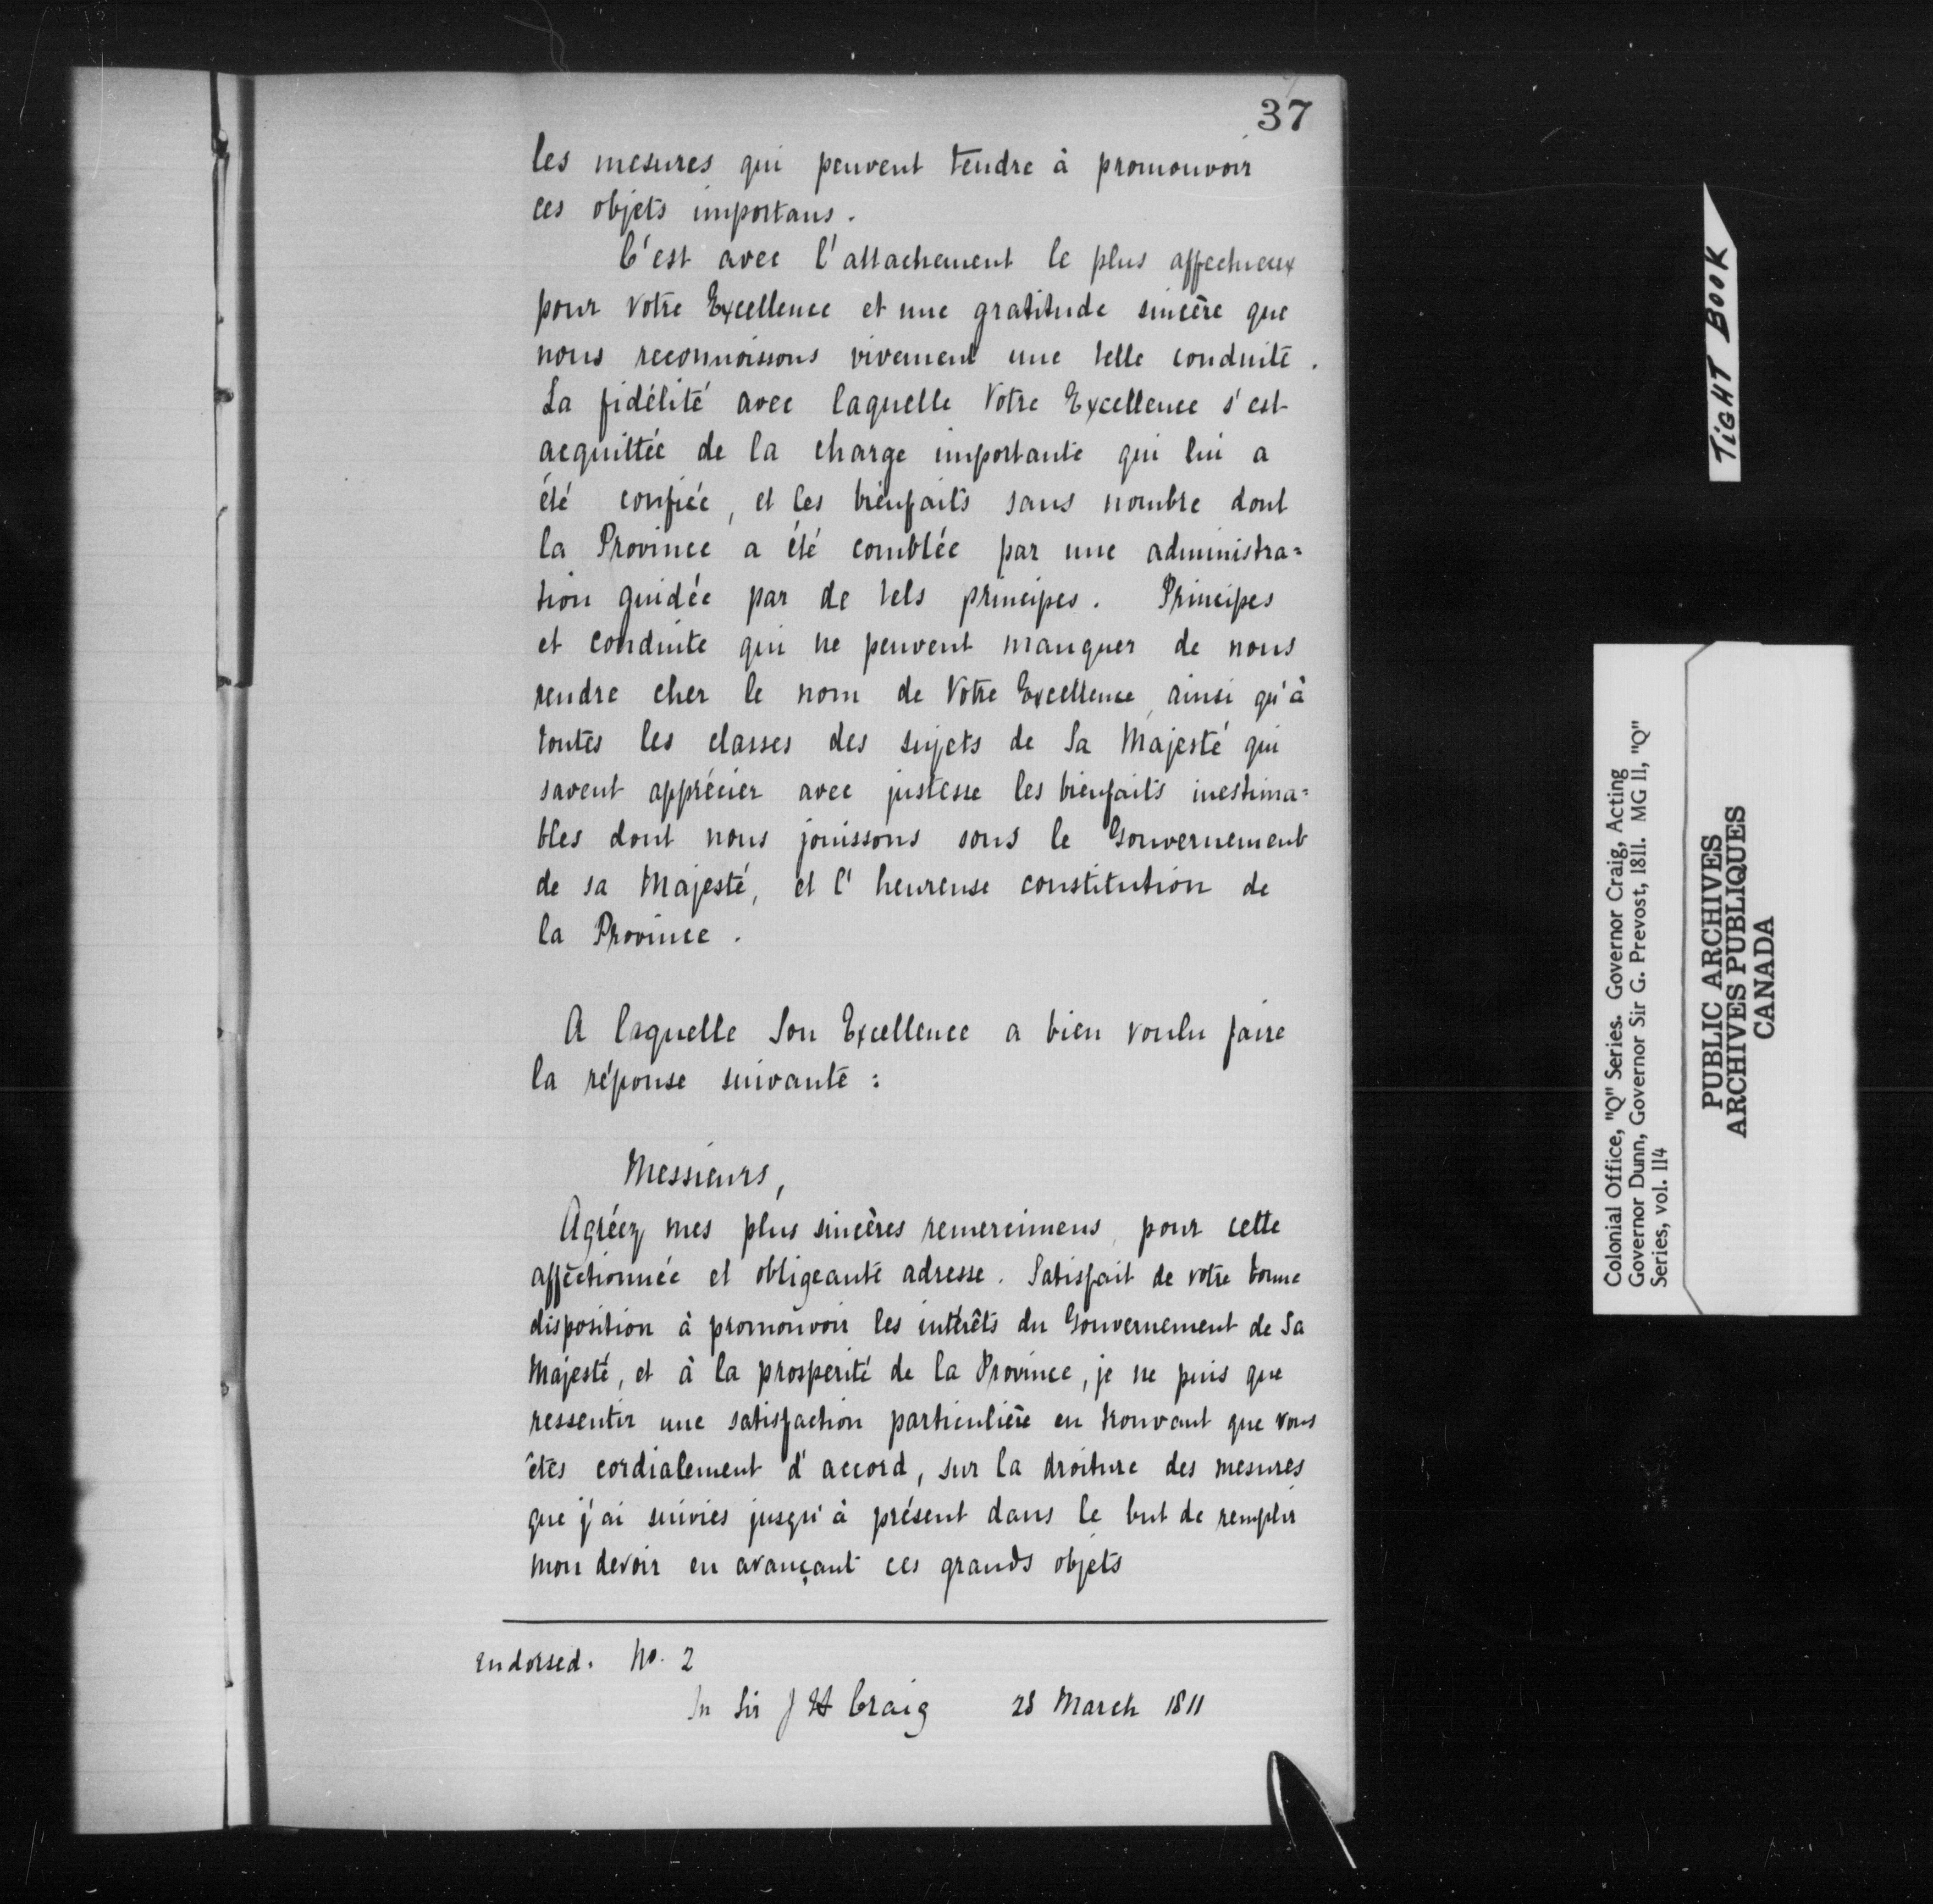 37
les mesures qui peuvent tendre à promouvoir
ces objets importans.
C'est avec l'attachement le plus affectueux
pour votre Excellence et une gratitude sincère que
nous reconnoissons vivement une telle conduite.
La fidélité avec laquelle Votre Excellence s'est
acquittée de la charge importante qui lui a
été confiée, et les bienfaits sans nombre dont
la Province a été comblée par une administra=
tion guidée par de tels principes. Principes
et conduite qui ne peuvent manquer de nous
rendre cher le nom de Votre Excellence, ainsi qu'à
toutes les classes des sujets de Sa Majesté qui
savent apprécier avec justesse les bienfaits inestima=
bles dont nous jouissons sous le Gouvernement
de sa Majesté, et l'heureuse constitution de
la Province.
A laquelle Son Excellence a bien voulu faire
la réponse suivante :
Messieurs,
Agréez mes plus sincères remercimens, pour cette
affectionnée et obligeante adresse. Satisfait de votre bonne
disposition à promouvoir les intérêts du Gouvernement de Sa
Majesté, et à la prosperité de la Province, je ne puis que
ressentir une satisfaction particulière en trouvant que vous
êtes cordialement d'accord, sur la droiture des mesures
que j'ai suivies jusqu'à présent dans le but de remplir
mon devoir en avançant ces grands objets
endorsed. No. 2
In Sir J H Craig 28 March 1811
TIGHT BOOK
Colonial Office, "Q" Series. Governor Craig, Acting
Governor Dunn, Governor Sir G. Prevost, 1811. MG 11, "Q"
Series, vol. 114
PUBLIC ARCHIVES
ARCHIVES PUBLIQUES
CANADA